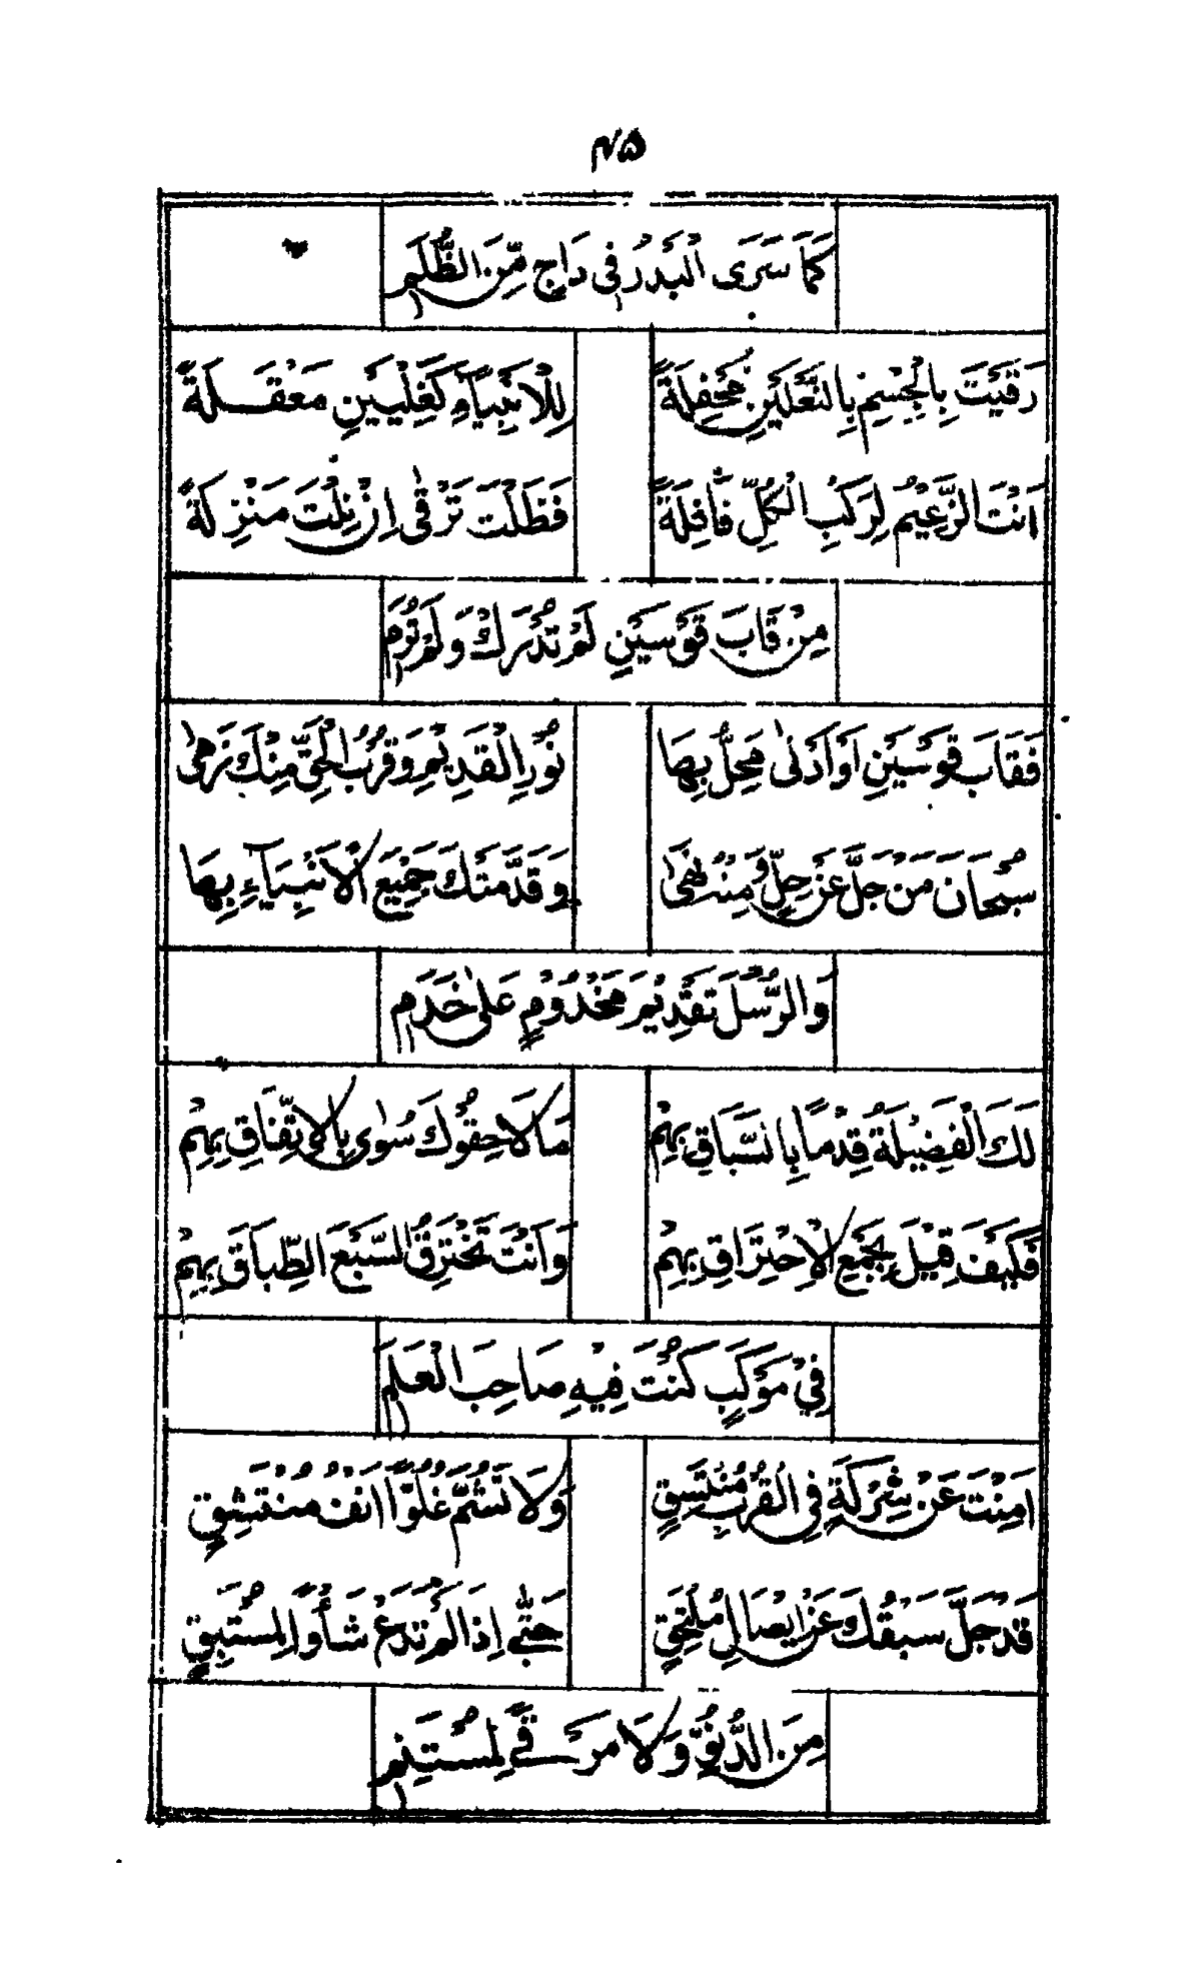 ۴۵
كَمَا سَرَى الْبَدْرُ فِى دَاجٍ مِّنَ الظُّلَمِ
رَقَيْتَ بِالْجِسْمِ بِالنَّعْلَيْنِ مُحْفِلَةً لِلْاَنْبِيَآءِ كَغِلْيَيْنِ مَعْقَلَةً
اَنْتَ الزَّعِيْمُ لِرَكْبِ الْكُلِّ قَافِلَةً فَظَلْتَ تَرْقٰى اِنْ نِلْتَ مَنْزِلَةً
مِنْ قَابَ قَوْسَيْنِ لَمْ تُدْرَكْ وَلَمْ تُرَمِ
فَقَابَ قَوْسَيْنِ اَوْ اَدْنٰى مَحِلُّ بِهَا نُوْرِ الْقَدِيْمِ وَقُرْبُ الْحَقِّ مِنْكَ زَهٰى
سُبْحَانَ مَنْ جَلَّ عَنْ حِلٍّ وَمِنْهُ نُهٰى وَقَدَّمَتْكَ جَمِيْعُ الْاَنْبِيَآءِ بِهَا
وَالرُّسْلُ تَقْدِيْمَ مَخْدُوْمٍ عَلٰى خَدَمِ
لَكَ الْفَضِيْلَةُ قِدْمًا بِالسَّبَاقِ بِهِمْ مَا لَاحِقُوْكَ سُوٰى بِالْاِتِّفَاقِ بِهِمْ
فَكَيْفَ قِيْلَ بِجَمْعِ الْاِحْتِرَاقِ بِهِمْ وَاَنْتَ تَخْتَرِقُ السَّبْعَ الطِّبَاقَ بِهِمْ
فِيْ مَوْكَبٍ كُنْتَ فِيْهِ صَاحِبَ الْعَلَمِ
اَمِنْتَ عَنْ شِرْكَةٍ فِى الْقُرْبِ مُنْتَسِقٍ وَلَا تَشُمُّ غُلُوًّا اَنْفُ مُنْتَشِقٍ
قَدْ جَلَّ سَبْقُكَ وَعَنْ اِيْصَالِ مُلْتَحِقٍ حَتّٰى اِذَا لَمْ تَدَعْ شَأْوًا لِمُسْتَبِقٍ
مِنَ الدُّنُوِّ وَلَا مَرْقًے لِمُسْتَنِمِ